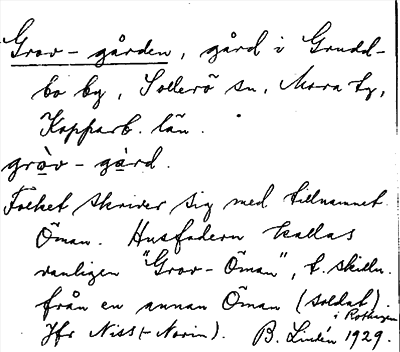 Grov-gården, gård i Grudd-
bo by, Sollerö sn, Mora tg,
Kopparb. län.
gròv-gàrd.
Folket skriver sig med tillnamnet
Öman. Husfadern kallas
vanligen "Grov-Öman", t. skilln.
från en annan Öman (soldat).
i Rothagen
Jfr Niss (-Norin). B. Lindén 1929.